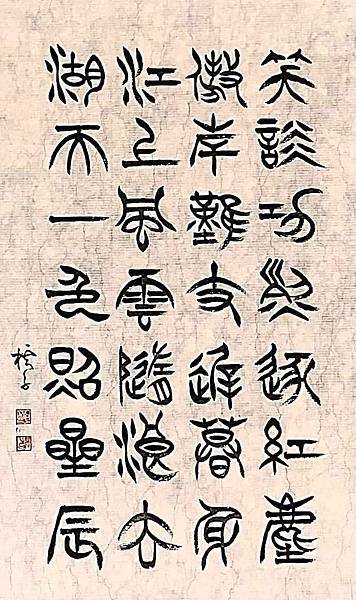 笑談功與逐紅塵
傲岸難支遲暮身
江上風雲隨浪去
湖天一色照星辰